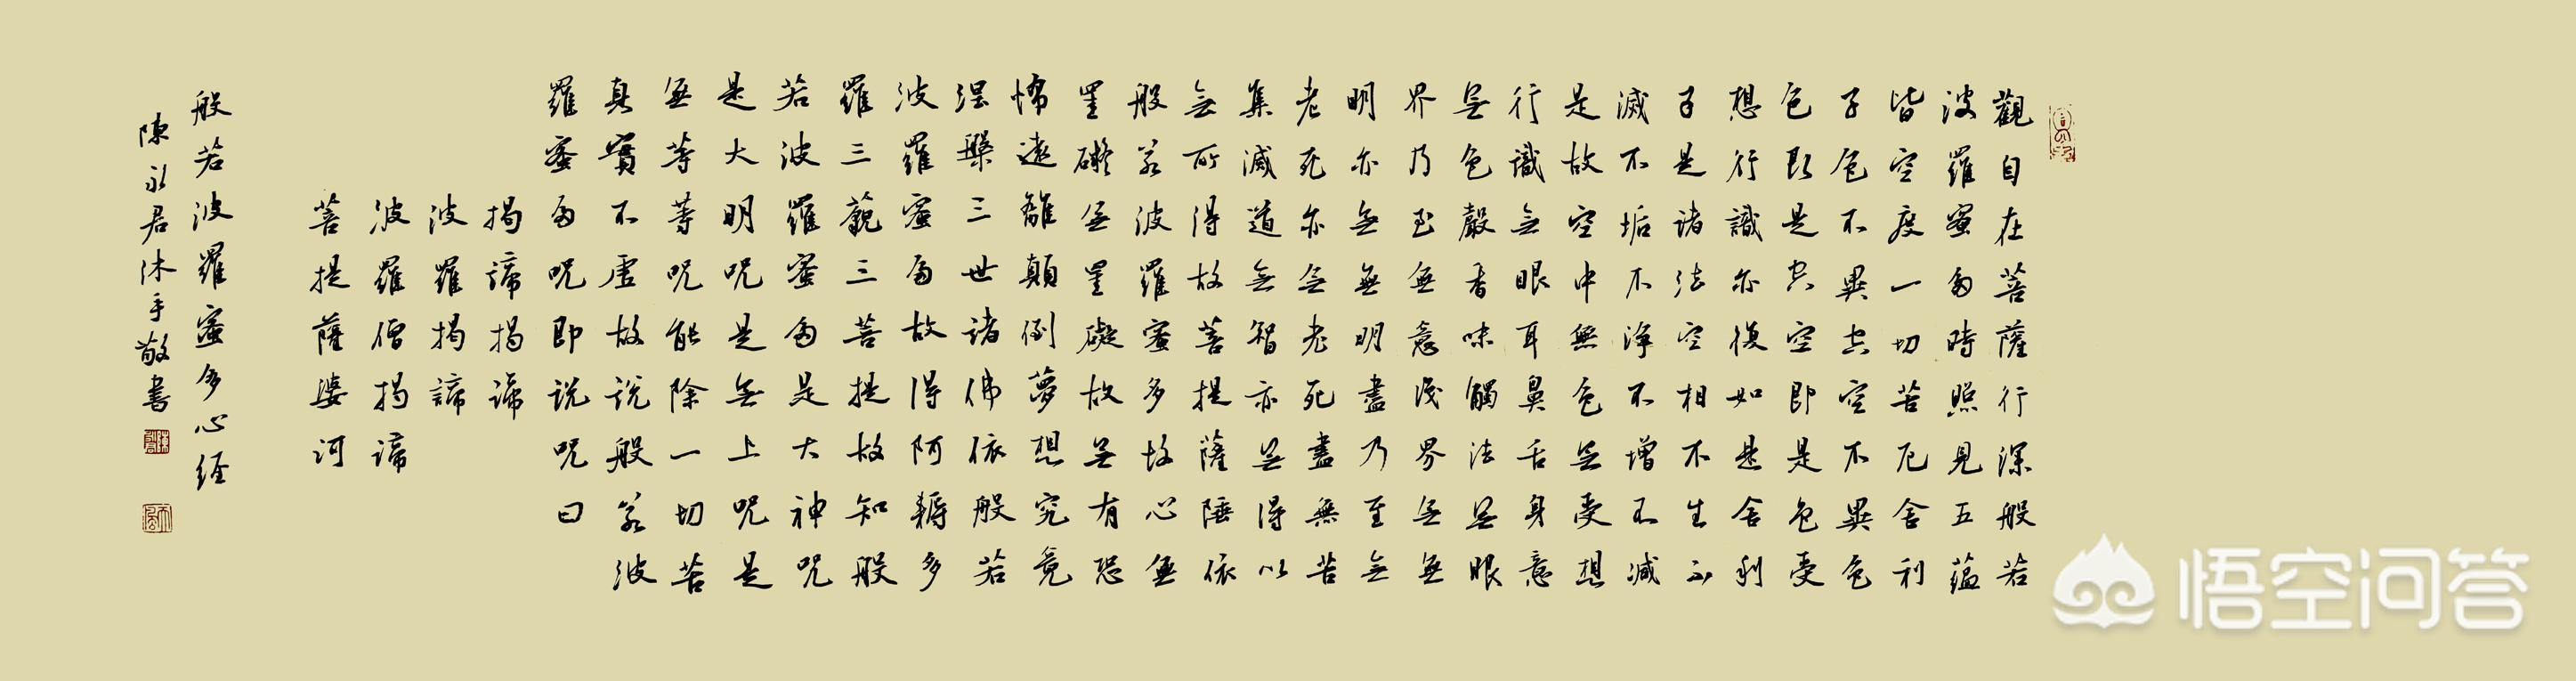 觀自在菩薩行深般若
波羅蜜多時照見五蘊
皆空度一切苦厄舍利
子色不異空空不異色
色即是空空即是色受
想行識亦復如是舍利
子是諸法空相不生不
滅不垢不淨不增不減
是故空中無色無受想
行識無眼耳鼻舌身意
無色聲香味觸法無眼
界乃至無意識界無無
明亦無無明盡乃至無
老死亦無老死盡無苦
集滅道無智亦無得以
無所得故菩提薩埵依
般若波羅蜜多故心無
罣礙無罣礙故無有恐
怖遠離顛倒夢想究竟
涅槃三世諸佛依般若
波羅蜜多故得阿耨多
羅三藐三菩提故知般
若波羅蜜多是大神咒
是大明咒是無上咒是
無等等咒能除一切苦
真實不虛故說般若波
羅蜜多咒即說咒曰
揭諦揭諦
波羅揭諦
波羅僧揭諦
菩提薩婆訶
般若波羅蜜多心经
陳永君沐手敬書
悟空问答